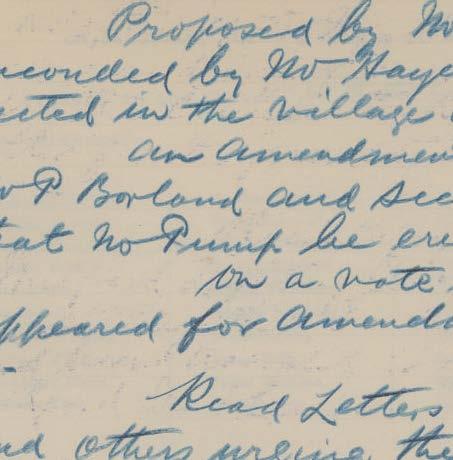 Proposed by Mr
seconded by Mr Haye
ected in the village
an amendmen
P Borland and sec
that No Pump be ere
on a vote
appeared for Amendm
Read Letters
and others urging the